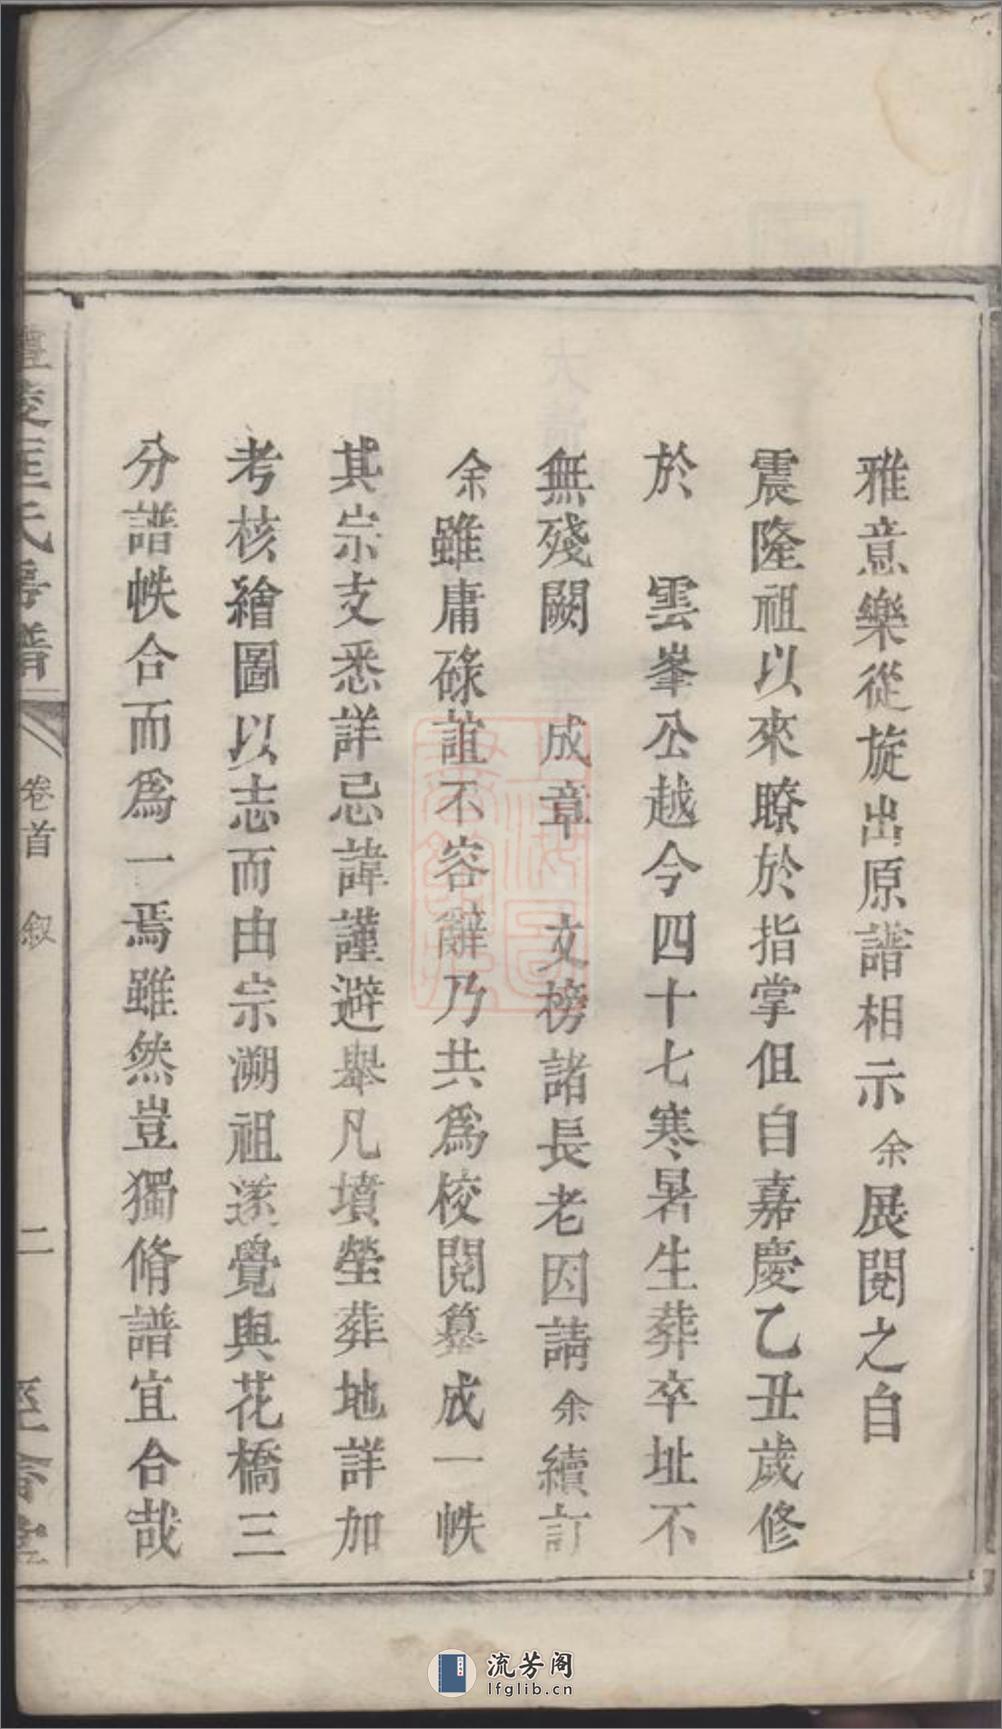 雅意樂從旋出原譜相示余展閱之自
震隆祖以來瞭於指掌但自嘉慶乙丑歲修
於　雲峯公越今四十七寒暑生葬卒址不
無殘闕　成章　文榜諸長老因請余續訂
余雖庸碌誼不容辭乃共為校閱纂成一帙
其宗支悉詳忌諱謹避舉凡墳塋葬地詳加
考核繪圖以志而由宗溯祖遂覺與花橋三
分譜帙合而為一焉雖然豈獨脩譜宜合哉
陵匡氏房譜
卷首　敘
二
流芳阁
lfglib.cn